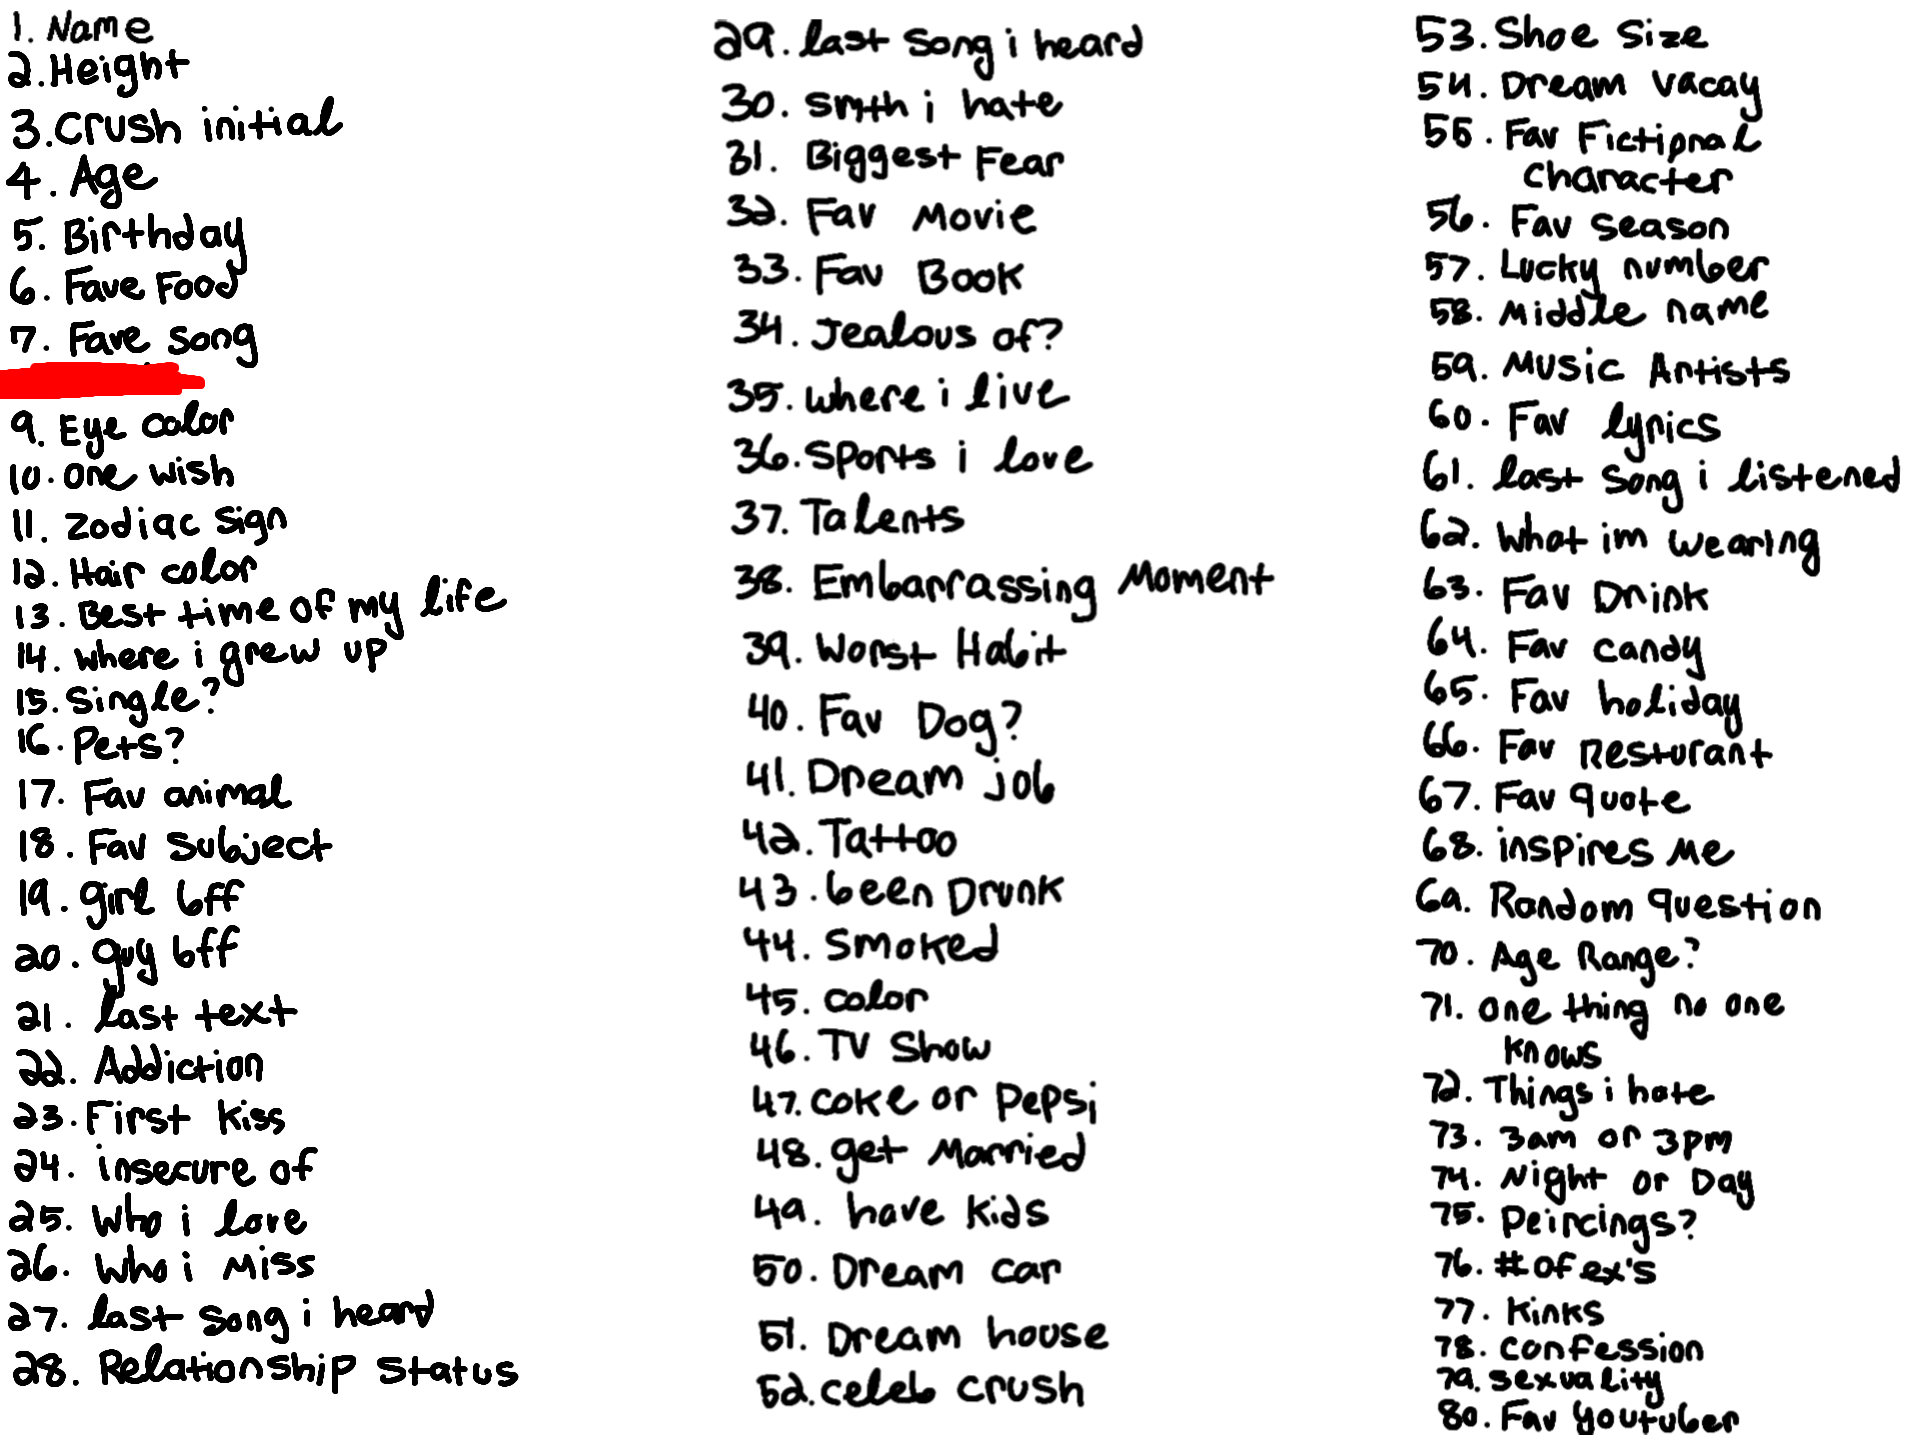 1. Name
2. Height
3. Crush initial
4. Age
5. Birthday
6. Fave Food
7. Fave song
9. Eye color
10. one wish
11. Zodiac sign
12. Hair color
13. Best time of my life
14. where i grew up
15. Single?
16. Pets?
17. Fav animal
18. Fav subject
19. girl bff
20. guy bff
21. last text
22. Addiction
23. First kiss
24. insecure of
25. Who i love
26. Who i Miss
27. last song i heard
28. Relationship status
29. last song i heard
30. smth i hate
31. Biggest Fear
32. Fav Movie
33. Fav Book
34. Jealous of?
35. where i live
36. Sports i love
37. Talents
38. Embarrassing Moment
39. Worst Habit
40. Fav Dog?
41. Dream job
42. Tattoo
43. been Drunk
44. Smoked
45. color
46. TV Show
47. coke or Pepsi
48. get Married
49. have kids
50. Dream car
51. Dream house
52. celeb crush
53. Shoe Size
54. Dream vacay
55. Fav Fictional
character
56. Fav season
57. Lucky number
58. Middle name
59. Music Artists
60. Fav lyrics
61. last song i listened
62. What im wearing
63. Fav Drink
64. Fav candy
65. Fav holiday
66. Fav Resturant
67. Fav quote
68. inspires Me
69. Random question
70. Age Range?
71. one thing no one
knows
72. Things i hate
73. 3am or 3pm
74. Night or Day
75. Peircings?
76. # of ex's
77. Kinks
78. confession
79. sexuality
80. Fav youtuber